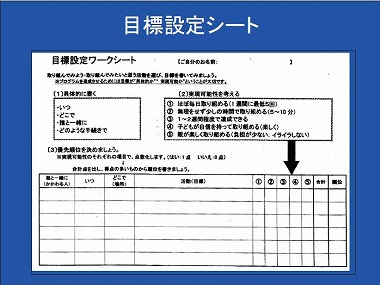 目標設定シート
目標設定ワークシート 【ご自分のお名前: 】
取り組んでみよう・取り組んでみたいと思う活動を選び、目標を書いてみましょう。
※プログラムを達成させるためには目標が"具体的か""実現可能か"ということが大切です。
(1)具体的に書く
・いつ
・どこで
・誰と一緒に
・どのような手続きで
(2)実現可能性を考える
① ほぼ毎日取り組める(1週間に最低5回)
② 無理をせず少しの時間で取り組める(5~10分)
③ 1~2週間程度で達成できる
④ 子どもが自信を持って取り組める(楽しく)
⑤ 親が楽しく取り組める(負担が少ない、イライラしない)
(3)優先順位を決めましょう。
※実現可能性のそれぞれの項目で、点数化します。(はい:1点 いいえ:0点)
合計点を出し、得点の多いものから順位を書きましょう。
誰と一緒に いつ どこで 活動(目標) ① ② ③ ④ ⑤ 合計 順位
(かかわる人) (場所)